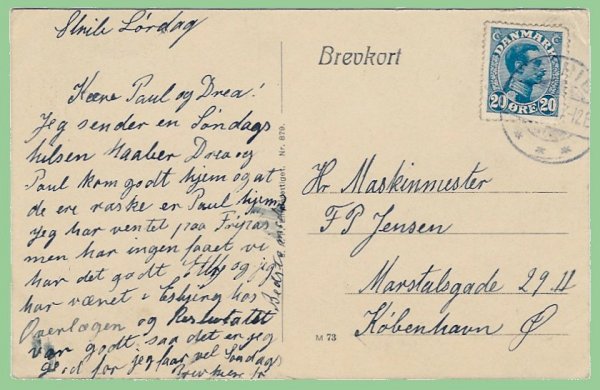 Lørdag
Kære Paul og Drea!
Jeg sender en Søndags
hilsen Haaber Drea og
Paul kom godt hjem og at
de ere raske er Paul hjem
Jeg har ventet paa
men har ingen faaet vi
har det godt og jeg
har været i Esbjerg hos
Overlægen og Resultatet
var godt saa det er jeg
glad for jeg faar vel Søndags
Brevkort
DANMARK
20 ØRE 20
Nr. 879.
Hr Maskinmester
F P Jensen
Marstalsgade 29 II
København Ø
M 73